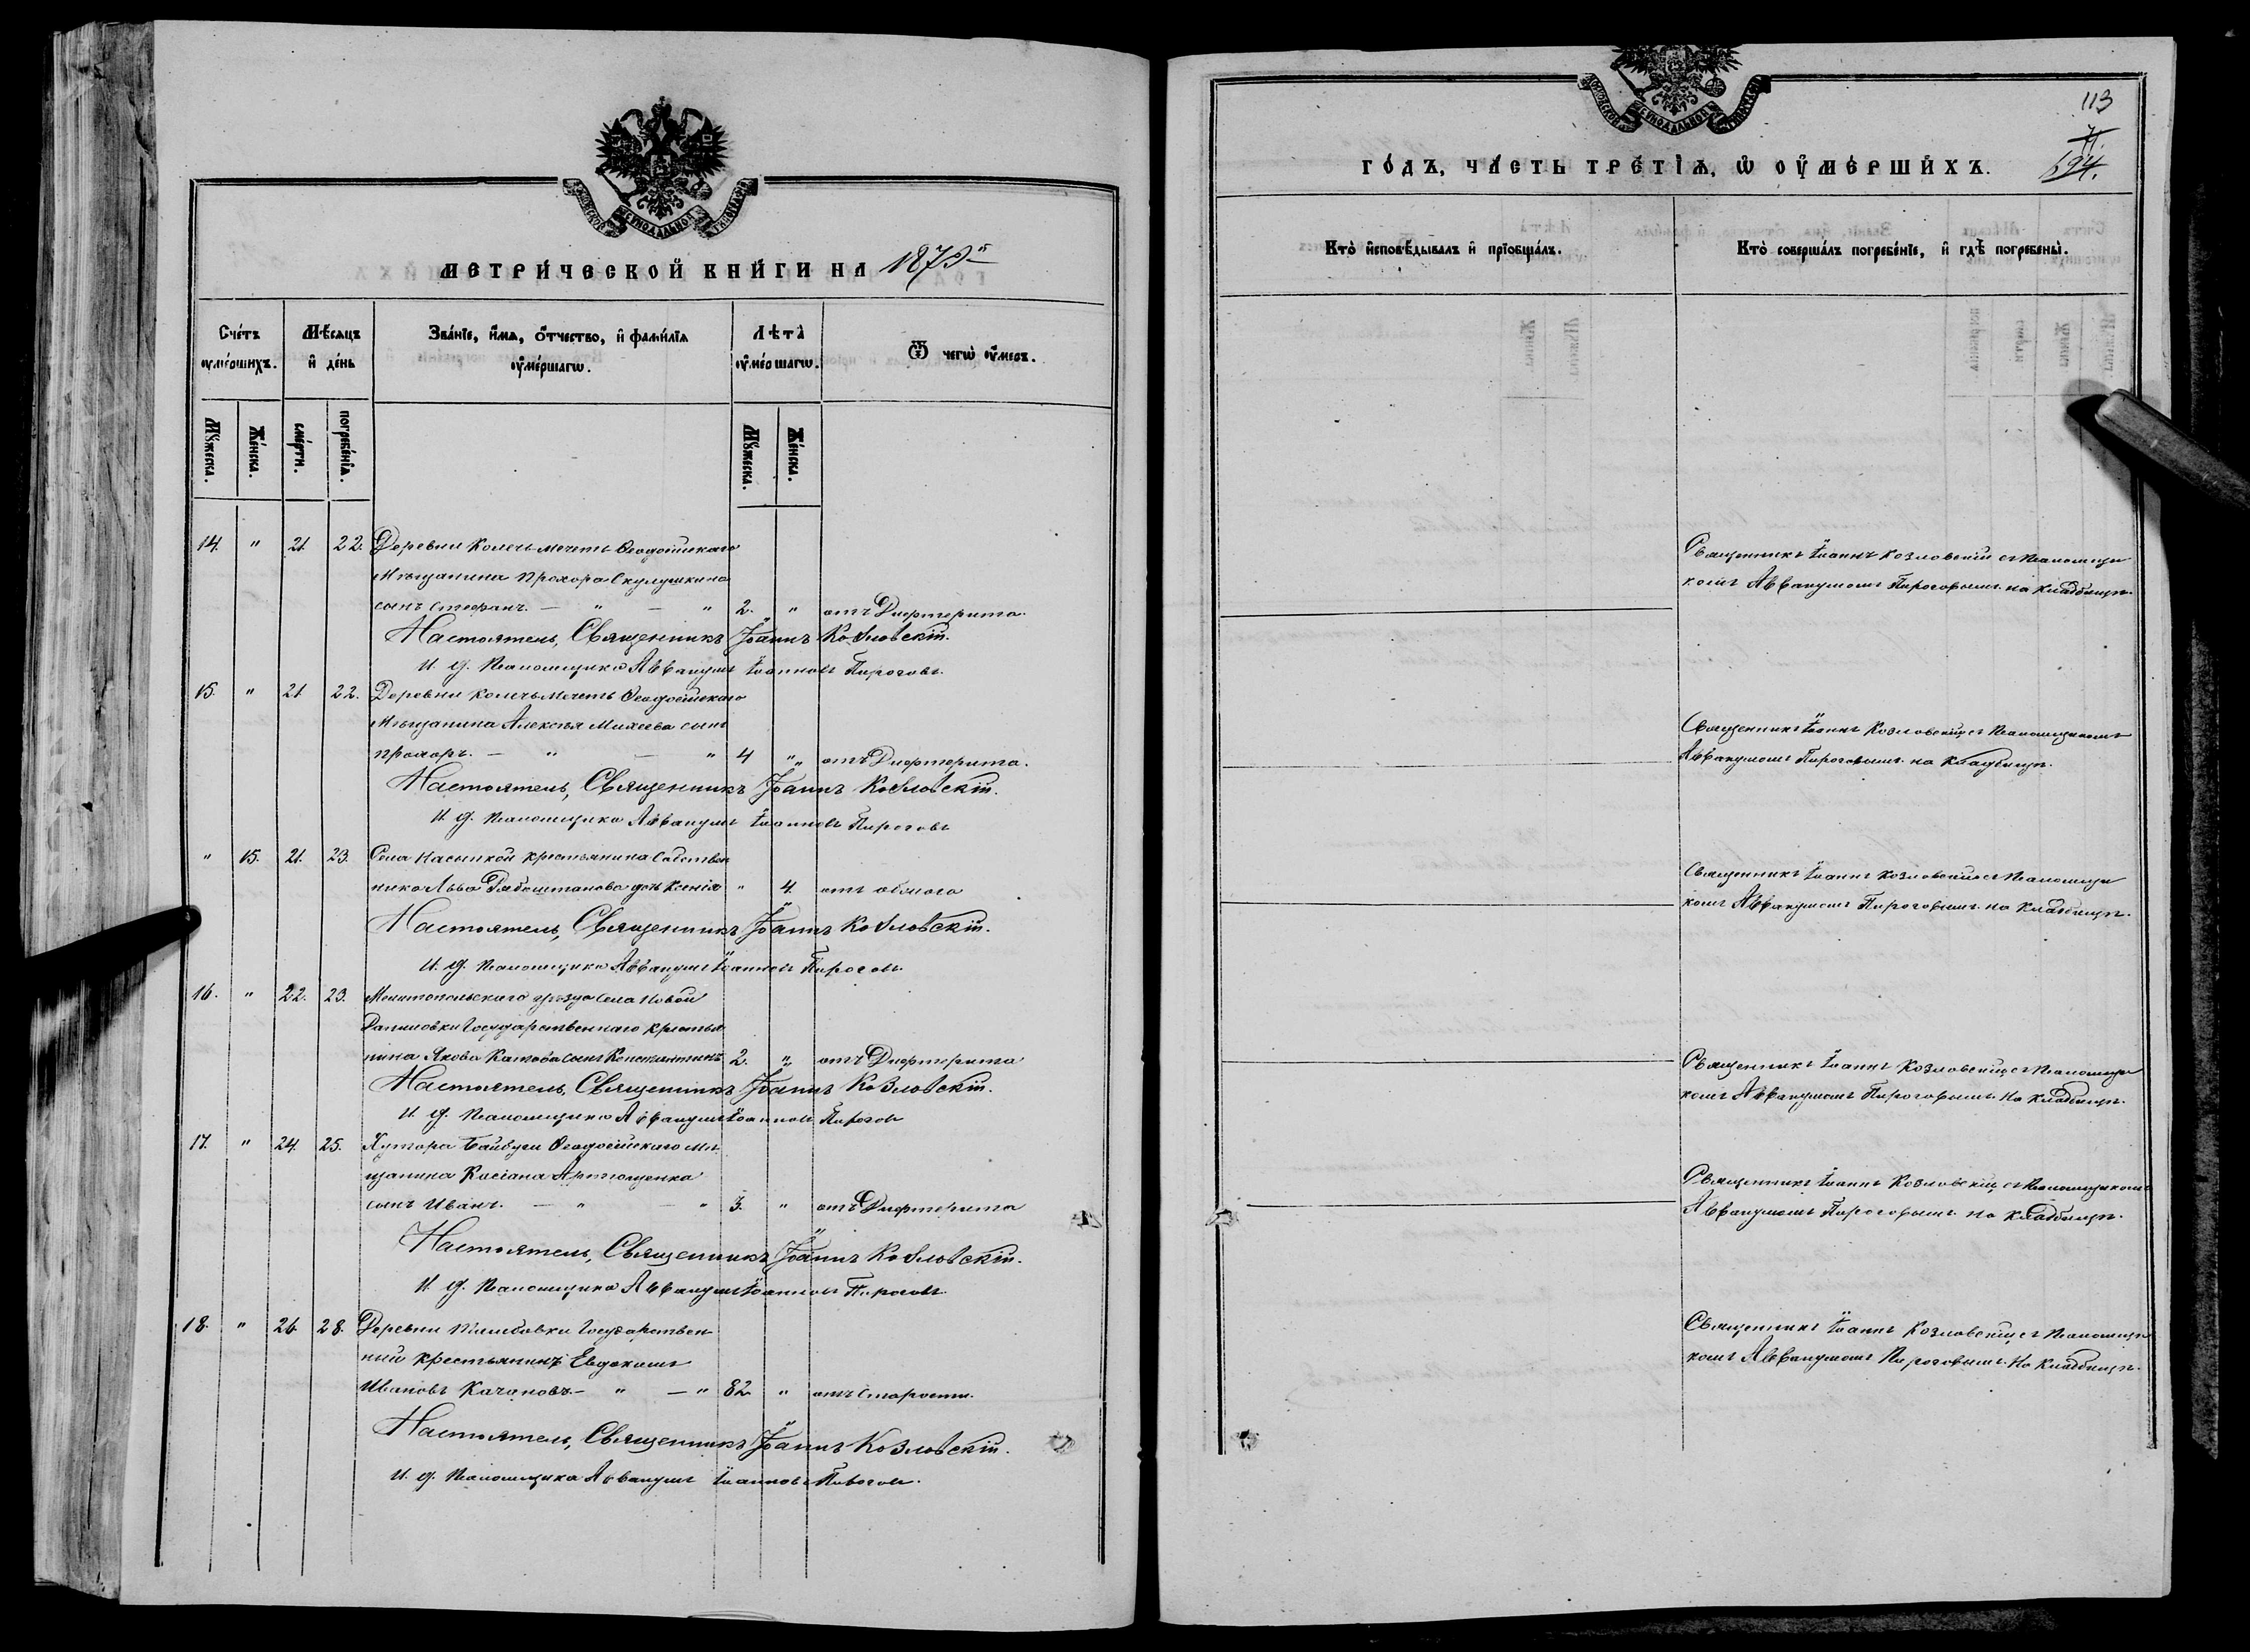 МОСКОВСКОЙ СѴНОДАЛЬНОЙ ТИПОГРАФІИ
МЕТРИ́ЧЕСКОЙ КНИ́ГИ НА 1879й
Сче́тъ ᲂу҆ме́ршихъ.
Мѣ́сѧцъ и҆ де́нь
Зва́нїе, и҆́мѧ, ѻ҆́тчество, и҆ фамі́лїѧ ᲂу҆ме́ршагѡ.
Лѣта̀ ᲂу҆ме́ршагѡ.
Ѿ чегѡ̀ ᲂу҆́меръ.
Мꙋ́жеска.
Же́нска.
сме́рти.
погребе́нїѧ.
Мꙋ́жеска.
Же́нска.
14. " 21. 22. Деревни Колечь-мечеть Ѳеодосійскаго
Мѣщанина Прохора Скулушкина
сынъ Стефанъ. — " — " 2. " отъ Дифтерита.
Настоятель, Священникъ Іоаннъ Козловскій.
И. д. Псаломщика Аввакумъ Іоанновъ Пироговъ.
15. " 21 22. Деревни Колечьмечеть Ѳеодосійскаго
Мѣщанина Алексѣя Михеева сынъ
Прохоръ. — " — " 4 " отъ Дифтерита.
Настоятель, Священникъ Іоаннъ Козловскій.
И. д. Псаломщика Аввакумъ Іоанновъ Пироговъ
" 15. 21. 23. Села Насыпкой крестьянина Собствен
ника Льва дочь Ксенія " 4. отъ
Настоятель, Священникъ Іоаннъ Козловскій.
И. д. Псаломщика Аввакумъ Іоанновъ Пироговъ.
16. " 22. 23. Мелитопольскаго уѣзда Села Новой
Даниловки Государственнаго крестья
нина Якова Катова сынъ Константинъ 2. " отъ Дифтерита
Настоятель, Священникъ Іоаннъ Козловскій.
И. д. Псаломщика Аввакумъ Іоанновъ Пироговъ
17. " 24. 25. Хутора Байбуги Ѳеодосійскаго Мѣ
щанина Касіана Артющенка
сынъ Иванъ. — " — " 3. " отъ Дифтерита
Настоятель, Священникъ Іоаннъ Козловскій.
И. д. Псаломщика Аввакумъ Іоанновъ Пироговъ.
18. " 26. 28. Деревни Государствен
ный крестьянинъ Евдокимъ
Ивановъ Качановъ — " — " 82 " отъ Старости.
Настоятель, Священникъ Іоаннъ Козловскій.
И. д. Псаломщика Аввакумъ Іоанновъ Пироговъ.
МОСКОВСКОЙ СѴНОДАЛЬНОЙ ТИПОГРАФІИ
113
694.
ГО́ДЪ, ЧА́СТЬ ТРЕ́ТЇѦ, Ѡ҆ ОУ҆МЕ́РШИХЪ.
Кто̀ и҆сповѣ́дывалъ и҆ прїобща́лъ.
Кто̀ соверша́лъ погребе́нїе, и҆ гдѣ̀ погребены̀.
Священникъ Іоаннъ Козловскій съ Псаломщи
комъ Аввакумомъ Пироговымъ. на кладбищѣ.
Священникъ Іоаннъ Козловскій съ Псаломщикомъ
Аввакумомъ Пироговымъ. на Кладбищѣ.
Священникъ Іоаннъ Козловскій съ Псаломщи
комъ Аввакумомъ Пироговымъ. на кладбищѣ.
Священникъ Іоаннъ Козловскій съ Псаломщи
комъ Аввакумомъ Пироговымъ. На кладбищѣ.
Священникъ Іоаннъ Козловскій съ Псаломщикомъ
Аввакумомъ Пироговымъ. на кладбищѣ.
Священникъ Іоаннъ Козловскій съ Псаломщи
комъ Аввакумомъ Пироговымъ. На кладбищѣ.